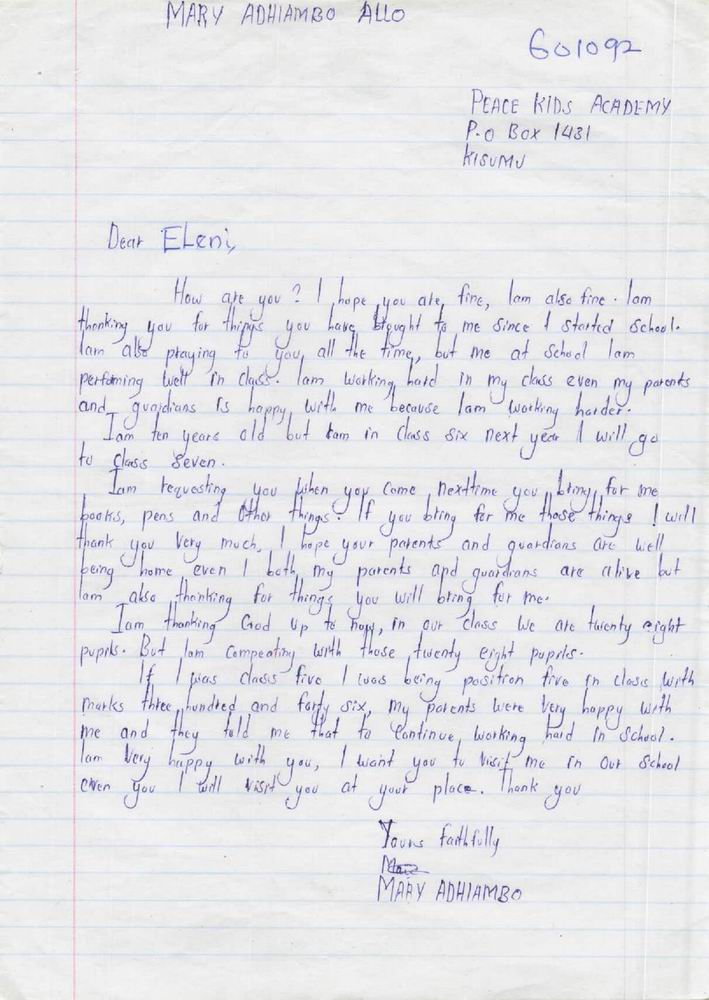 MARY ADHIAMBO ALLO
601092
PEACE KIDS ACADEMY
P.o Box 1431
KISUMU
Dear ELeni,
How are you? I hope you are, fine, Iam also fine. Iam
thanking you for things you have brought to me since I started school.
Iam also praying to you all the time, but me at school Iam
perfoming well in class. Iam working hard in my class even my parents
and guardians is happy with me because Iam working harder.
Iam ten years old but Iam in class six next year I will go
to class seven.
Iam requesting you when you come nexttime you bring for me
books, pens and other things. If you bring for me those things I will
thank you very much, I hope your parents and guardians are well
being home even I both my parents and guardians are alive but
Iam also thanking for things you will bring for me.
Iam thanking God up to now, in our class we are twenty eight
pupils. But Iam compeating with those twenty eight pupils.
If I was class five I was being position five in class with
marks three hundred and forty six, my parents were very happy with
me and they told me that to continue working hard in school.
Iam very happy with you, I want you to visit me in our school
even you I will visit you at your place. Thank you
Yours faithfully
MARY ADHIAMBO